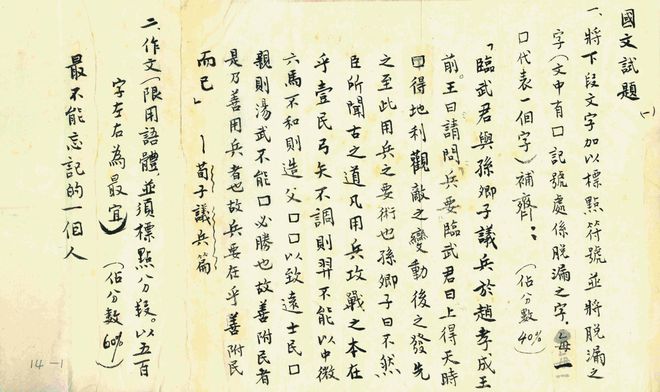 國文試題(一)
一、將下段文字加以標點符號並將脫漏之
字(文中有口記號處係脫漏之字，每一
口代表一個字)補齊：(佔分數40%)
「臨武君與孫卿子議兵於趙孝成王
前。王曰請問兵要臨武君曰上得天時
口得地利觀敵之變動後之發先
之至此用兵之要術也孫卿子曰不然
臣所聞古之道凡用兵攻戰之本在
乎壹民弓矢不調則羿不能以中微
六馬不和則造父口口以致遠士民口
親則湯武不能口必勝也故善附民者
是乃善用兵者也故兵要在乎善附民
而已」－荀子議兵篇
二、作文(限用語體並須標點八分段。以五百
字左右為最宜)(佔分數60%)
最不能忘記的一個人
14-1